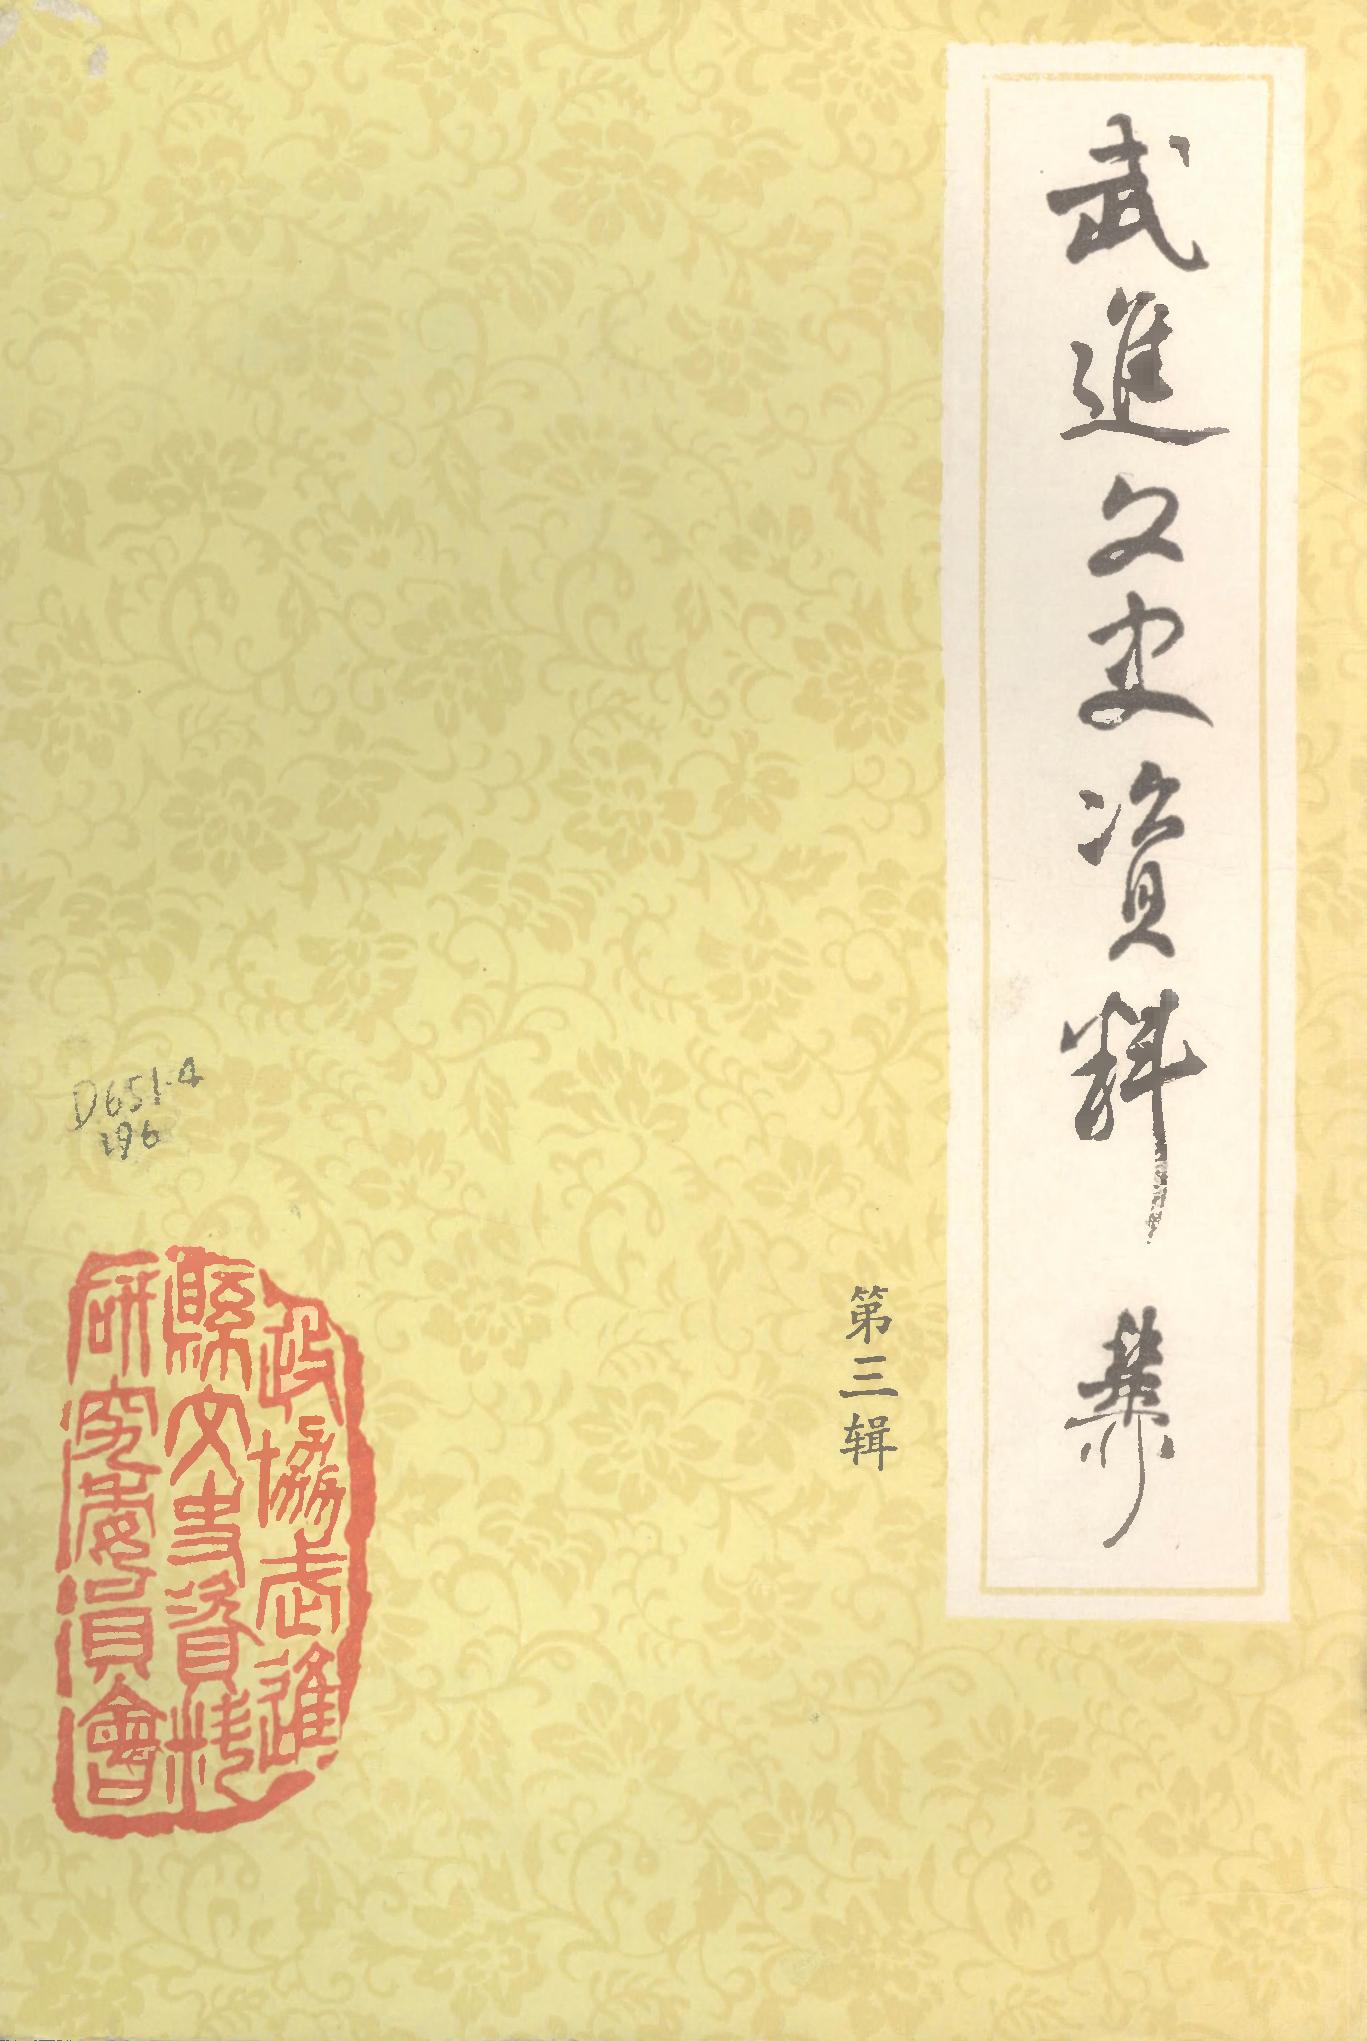 武進文史资料
第三辑
D651.4
196
政協武進
縣文史資料
研究委員會